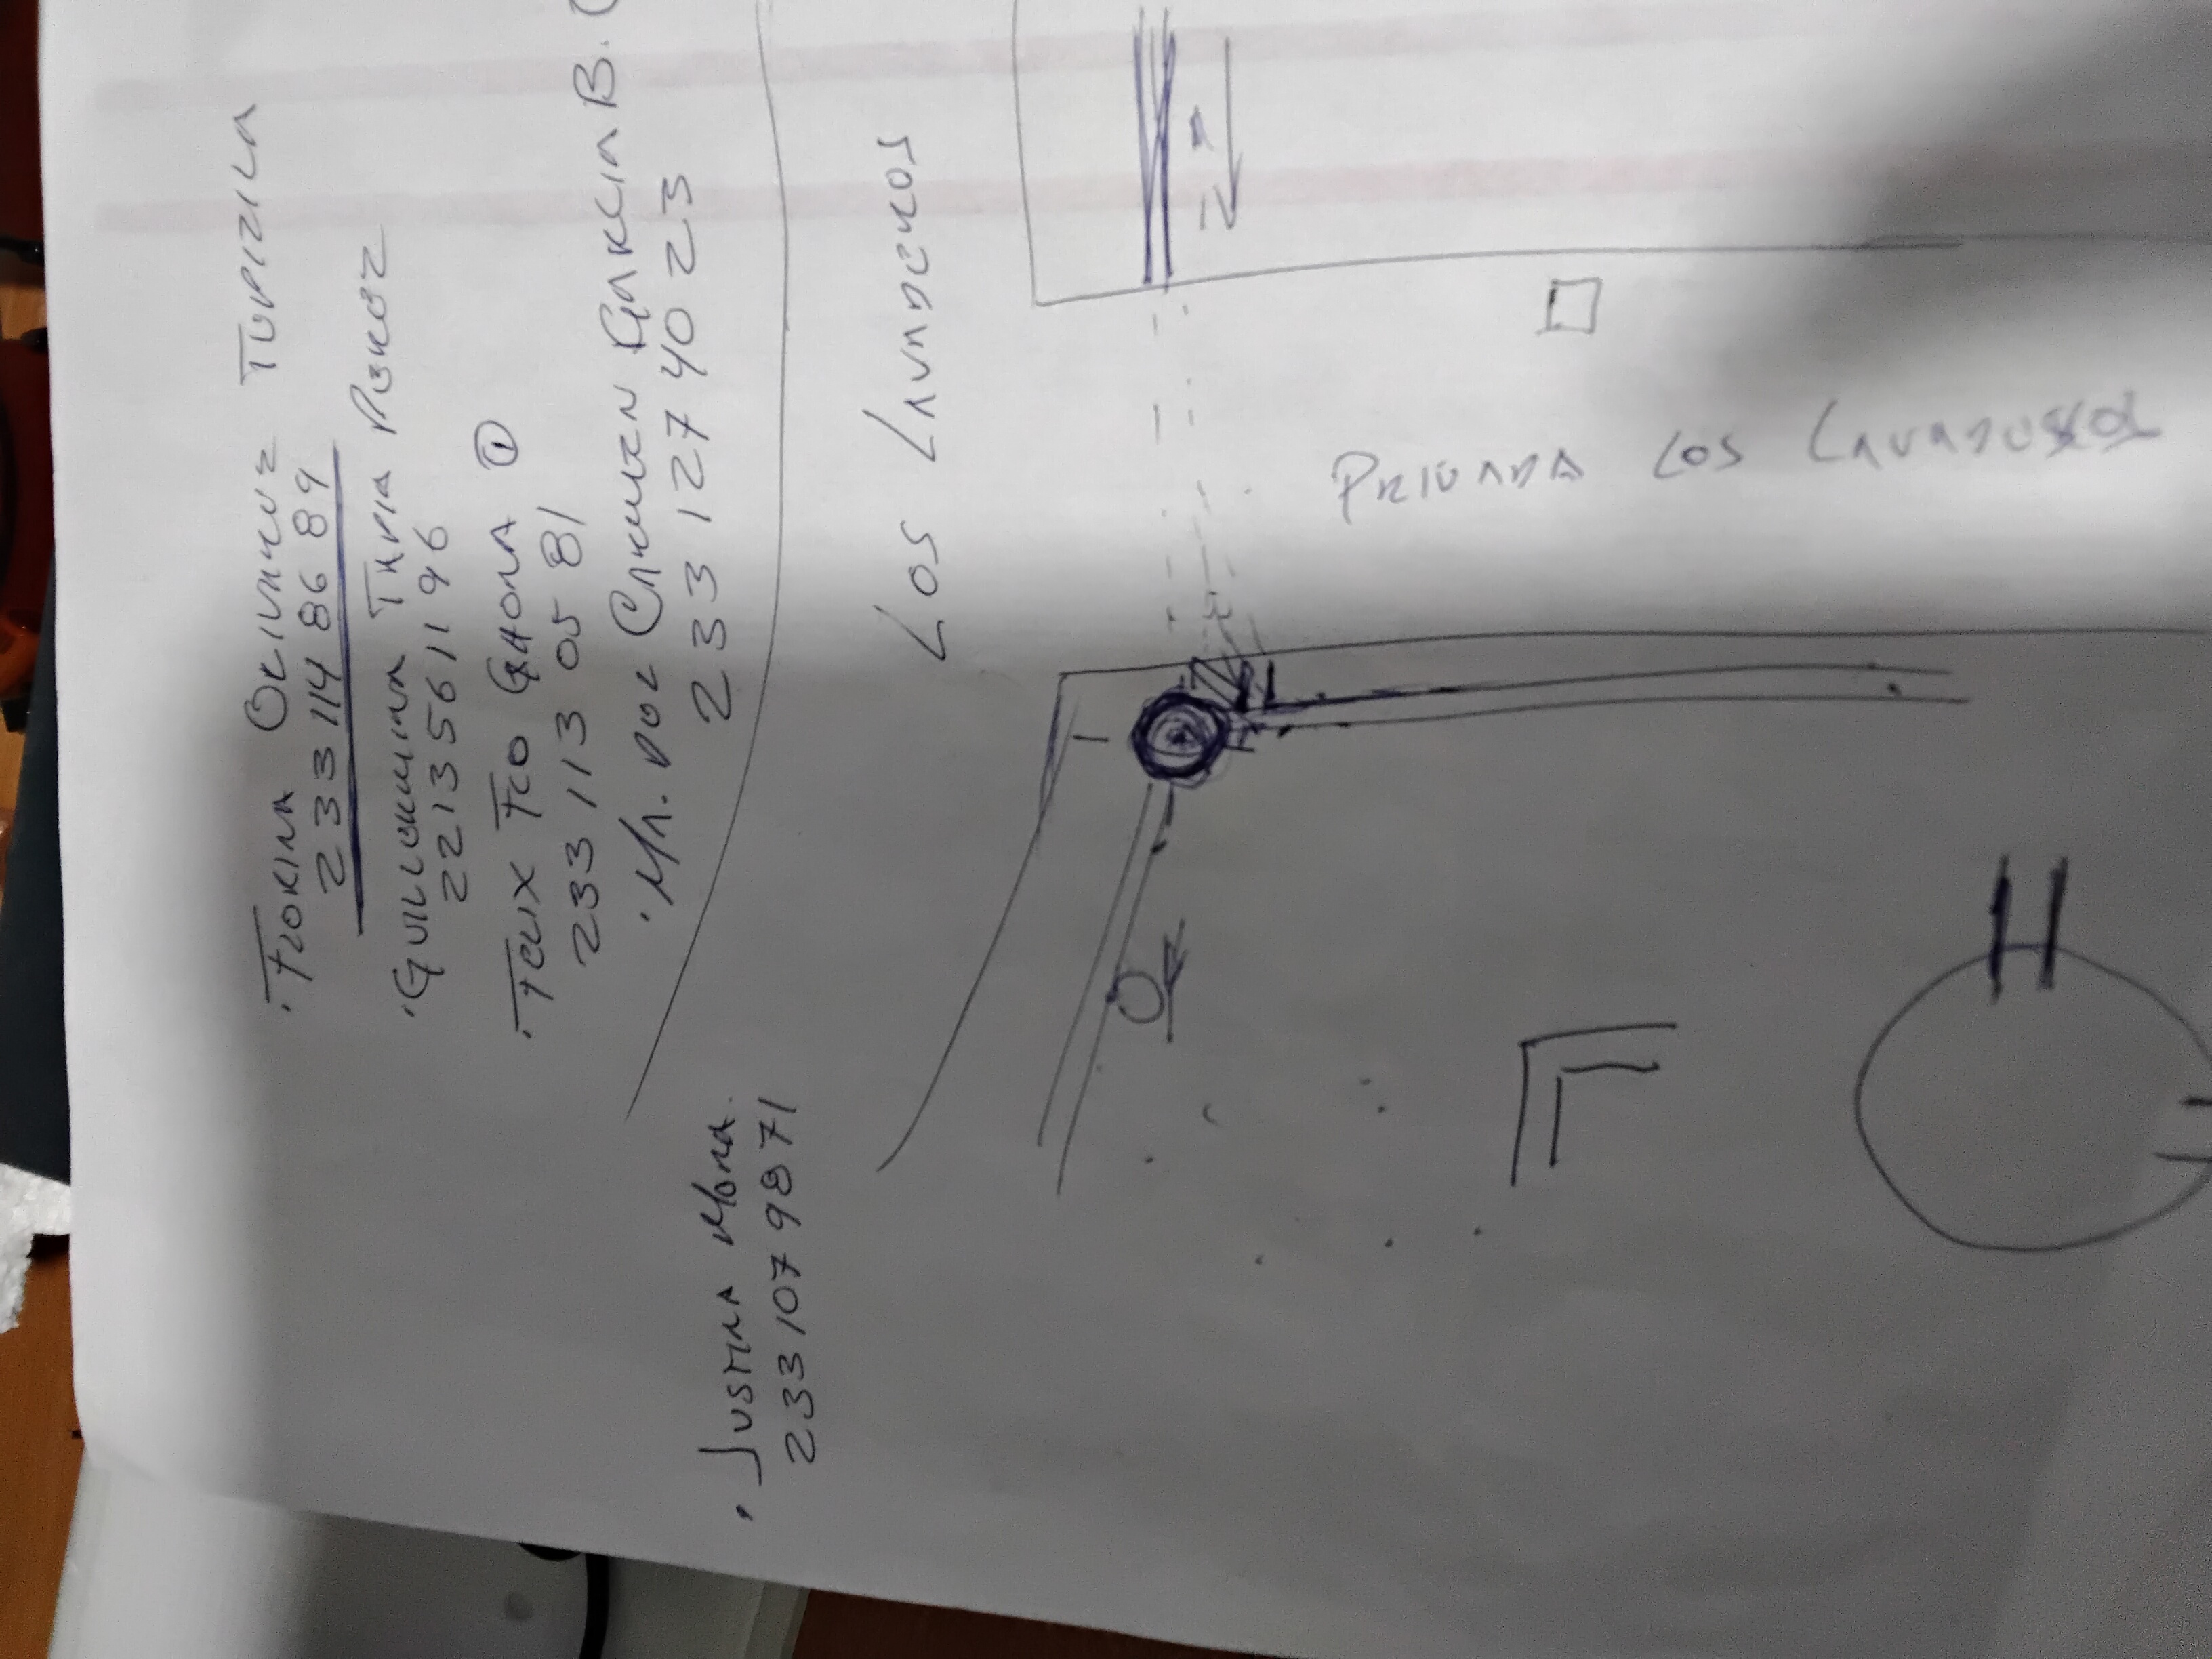 · FLORINA OLIVAREZ TOPIZILA
233 114 86 89
· GUILLERMINA TAPIA PEREZ
221 356 11 96
· FELIX FCO GAONA ①
233 113 05 81
· MA. DEL CARMEN GARCIA B.
233 127 40 23
· JUSTINA MORA.
233 107 98 71
LOS LAVADEROS
PRIVADA LOS LAVADEROS